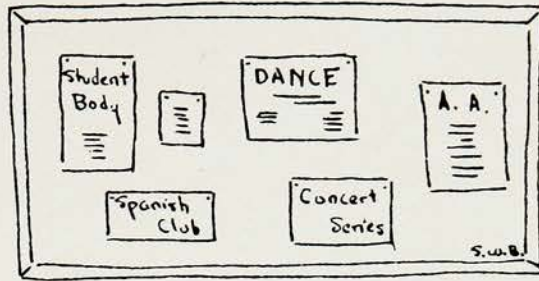 Student
Body
DANCE
A. A.
Spanish
Club
Concert
Series
S.W.B.